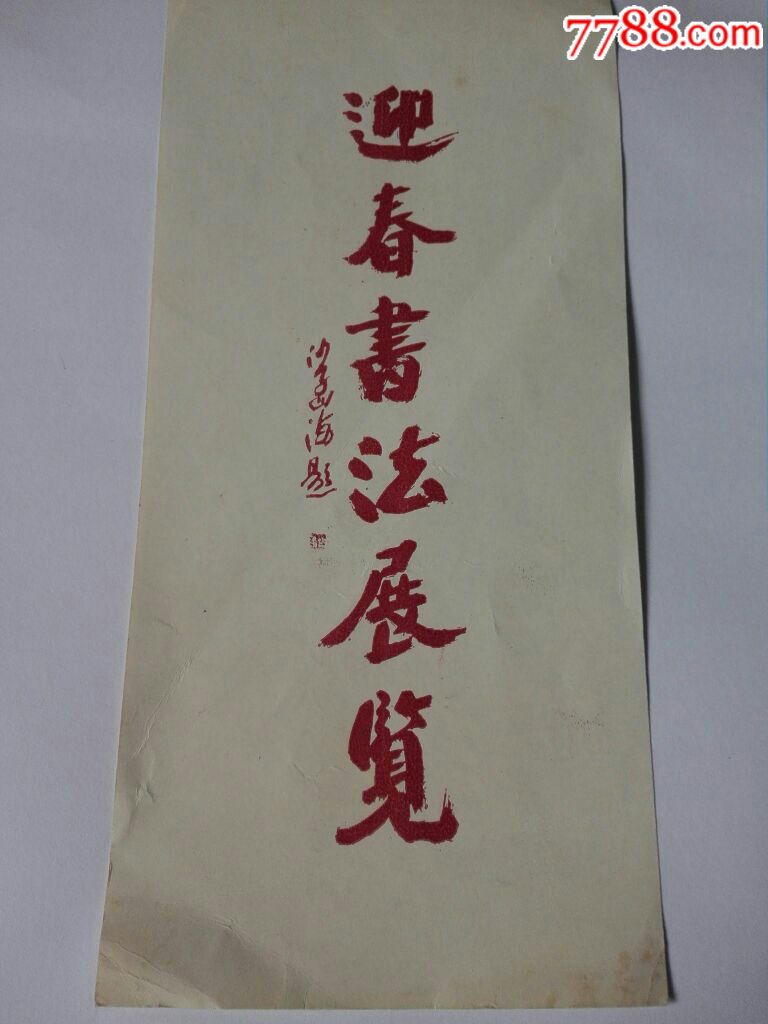 7788.com
迎春書法展覽
沙孟海題